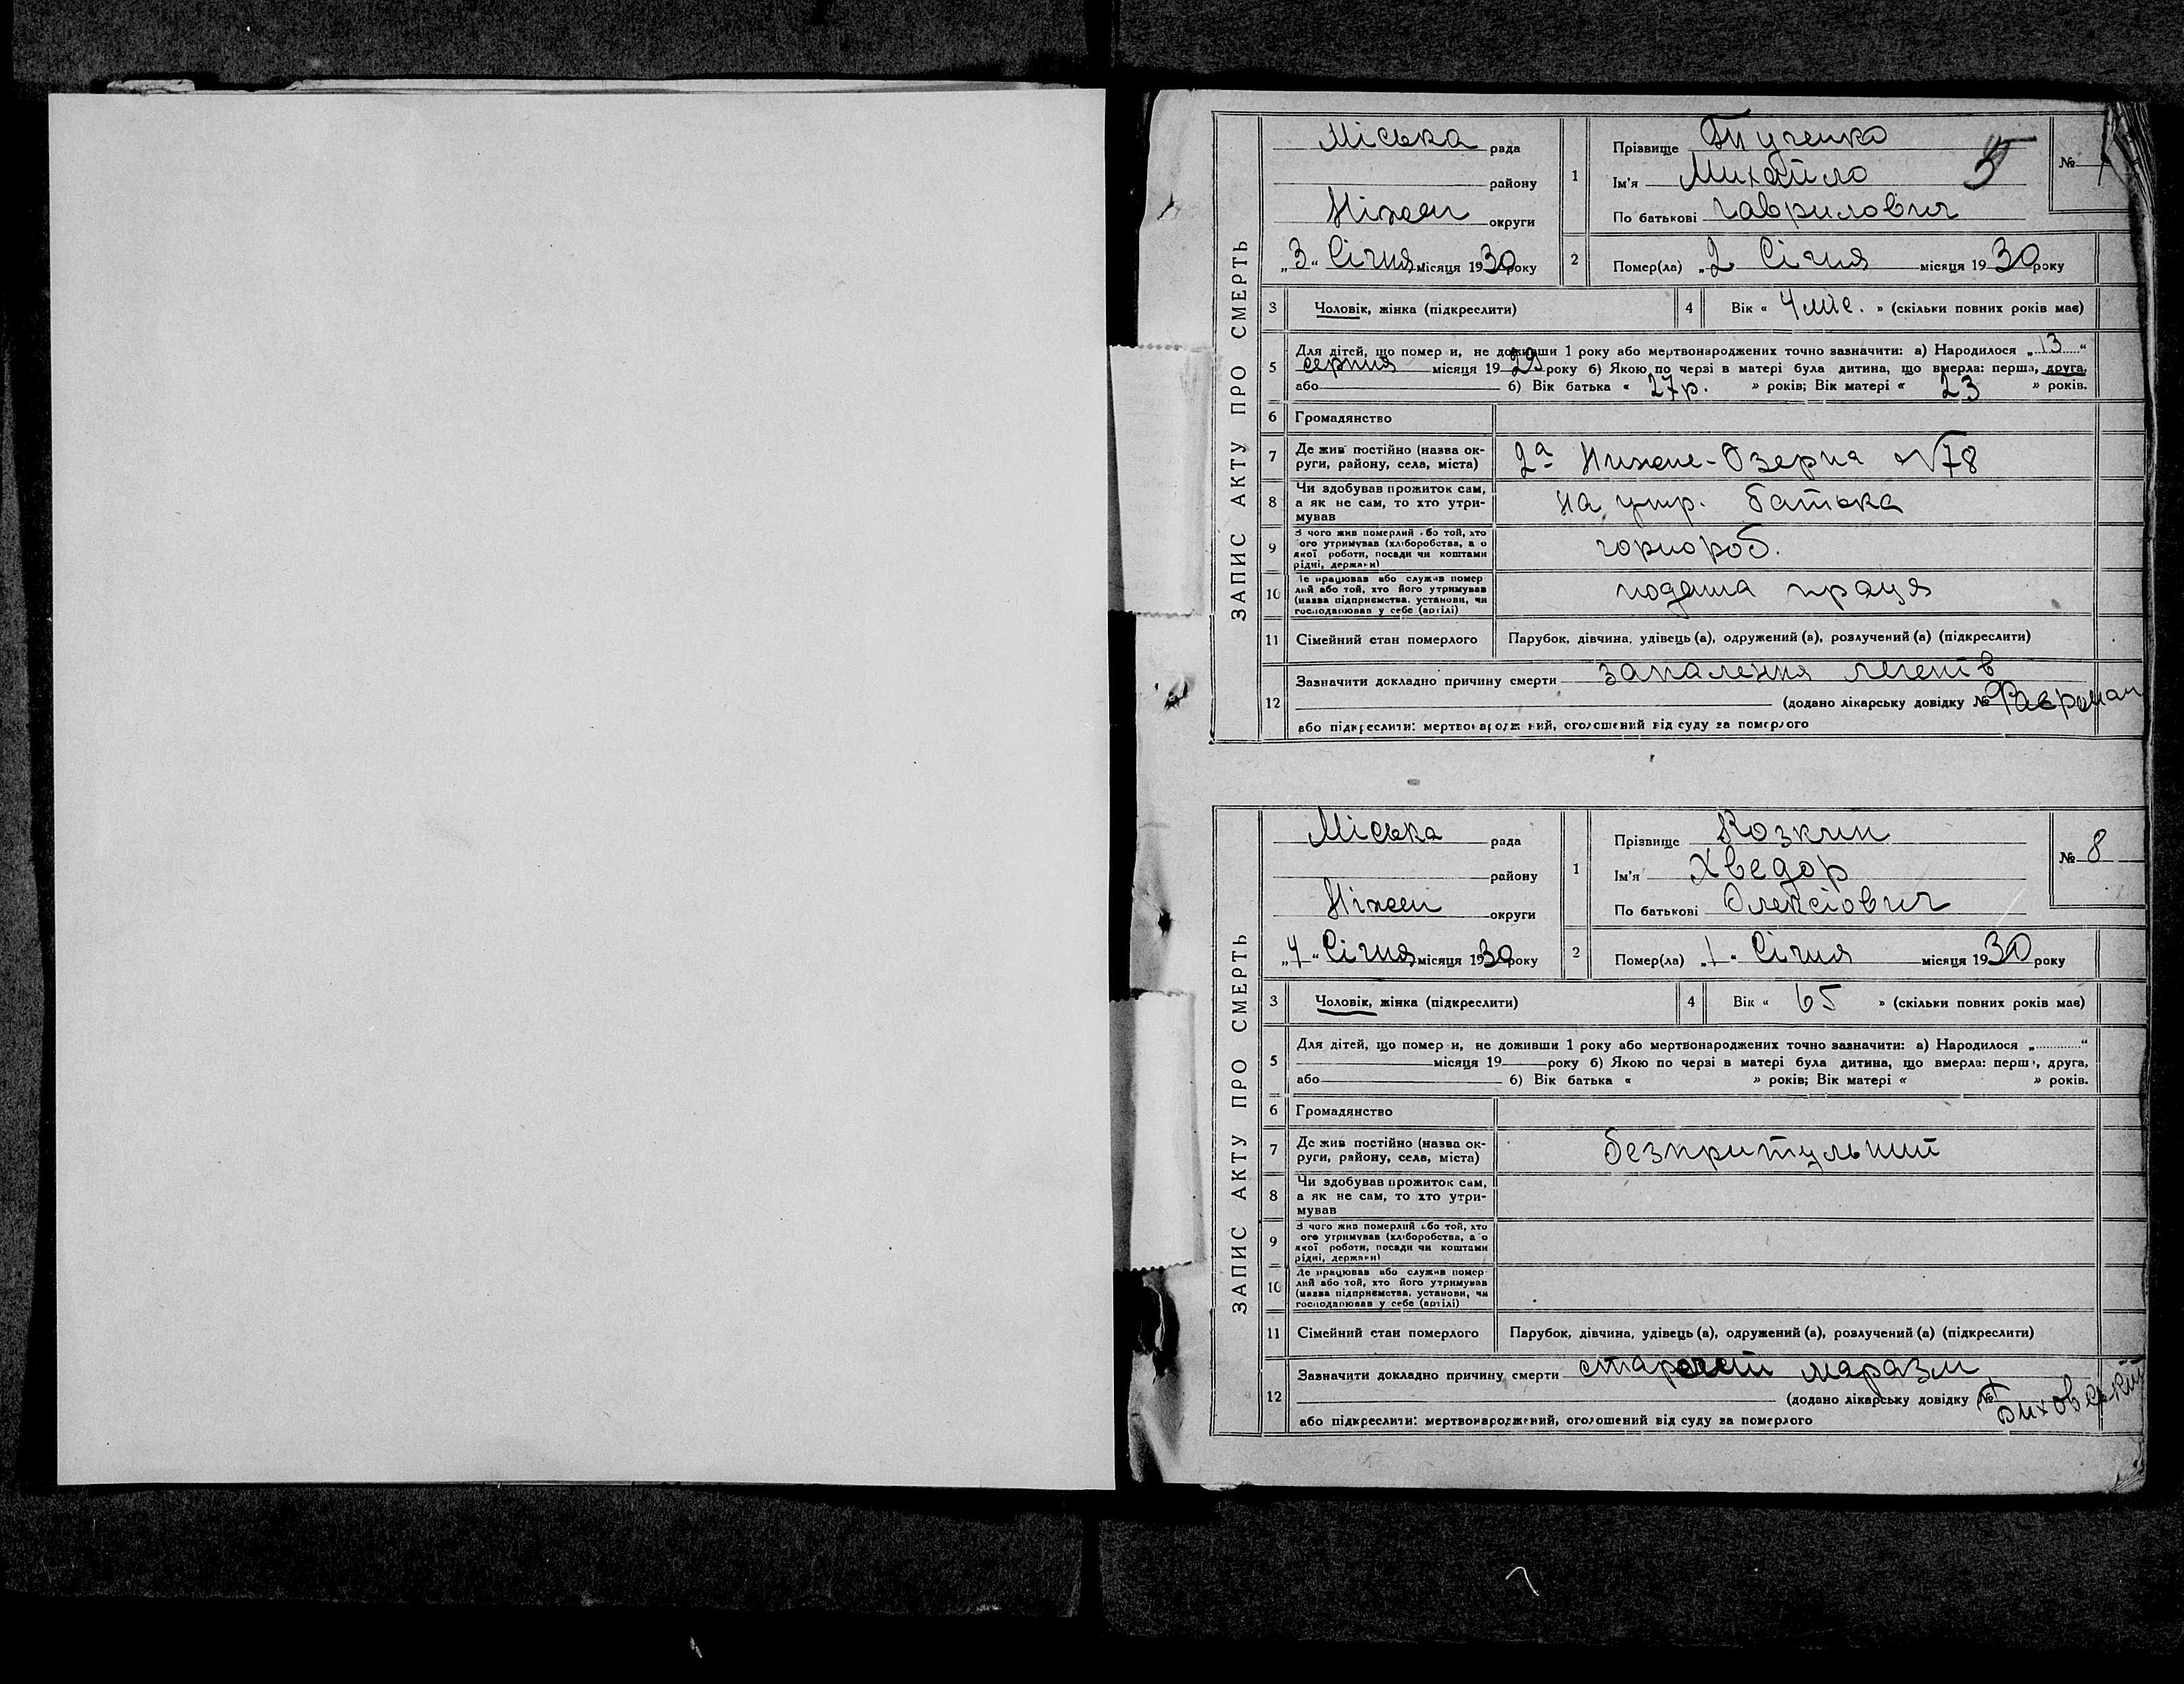 ЗАПИС АКТУ ПРО СМЕРТЬ
Міська рада
району
Ніжен округи
„3“ Січня місяця 1930 року
1
Прізвище
Ім'я Михайло
По батькові Гаврилович
5
№
2 Помер(ла) „2 Січня місяця 1930 року
3 Чоловік, жінка (підкреслити)
4 Вік « 4 міс. » (скільки повних років має)
5 Для дітей, що помер и, не доживши 1 року або мертвонароджених точно зазначити: а) Народилося „13“
серпня місяця 1929 року б) Якою по черзі в матері була дитина, що вмерла: перша, друга,
або б) Вік батька « 27 р. » років; Вік матері « 23 » років.
6 Громадянство
7 Де жив постійно (назва округи, району, села, міста) 2а Нижне-Озерна №78
8 Чи здобував прожиток сам, а як не сам, то хто утримував на утр. батька
9 З чого жив померлий або той, хто ого утримував (хліборобства, а о якої роботи, посади чи коштами рідні, держави) чорнороб.
10 Де працював або служив померлий або той, хто його утримував (назва підприємства, установи, чи господарював у себе (артілі) подена праця
11 Сімейний стан померлого Парубок, дівчина, удівець (а), одружений (а), розлучений (а) (підкреслити)
12 Зазначити докладно причину смерти запалення легенів
(додано лікарську довідку №
або підкреслити: мертвонароджений, оголошений від суду за померлого
ЗАПИС АКТУ ПРО СМЕРТЬ
Міська рада
району
Ніжен округи
„4“ Січня місяця 1930 року
1
Прізвище Козкин
Ім'я Хведор
По батькові Олексіович
№ 8
2 Помер(ла) „1“ Січня місяця 1930 року
3 Чоловік, жінка (підкреслити)
4 Вік « 65 » (скільки повних років має)
5 Для дітей, що помер и, не доживши 1 року або мертвонароджених точно зазначити: а) Народилося „ “
місяця 19 року б) Якою по черзі в матері була дитина, що вмерла: перш , друга,
або б) Вік батька « » років; Вік матері « » років.
6 Громадянство
7 Де жив постійно (назва округи, району, села, міста) безпритульний
8 Чи здобував прожиток сам, а як не сам, то хто утримував
9 З чого жив померлий або той, хто ого утримував (хліборобства, а о якої роботи, посади чи коштами рідні, держави)
10 Де працював або служив померлий або той, хто його утримував (назва підприємства, установи, чи господарював у себе (артілі)
11 Сімейний стан померлого Парубок, дівчина, удівець (а), одружений (а), розлучений (а) (підкреслити)
12 Зазначити докладно причину смерти старечий маразм
(додано лікарську довідку № Биховський
або підкреслити: мертвонароджений, оголошений від суду за померлого